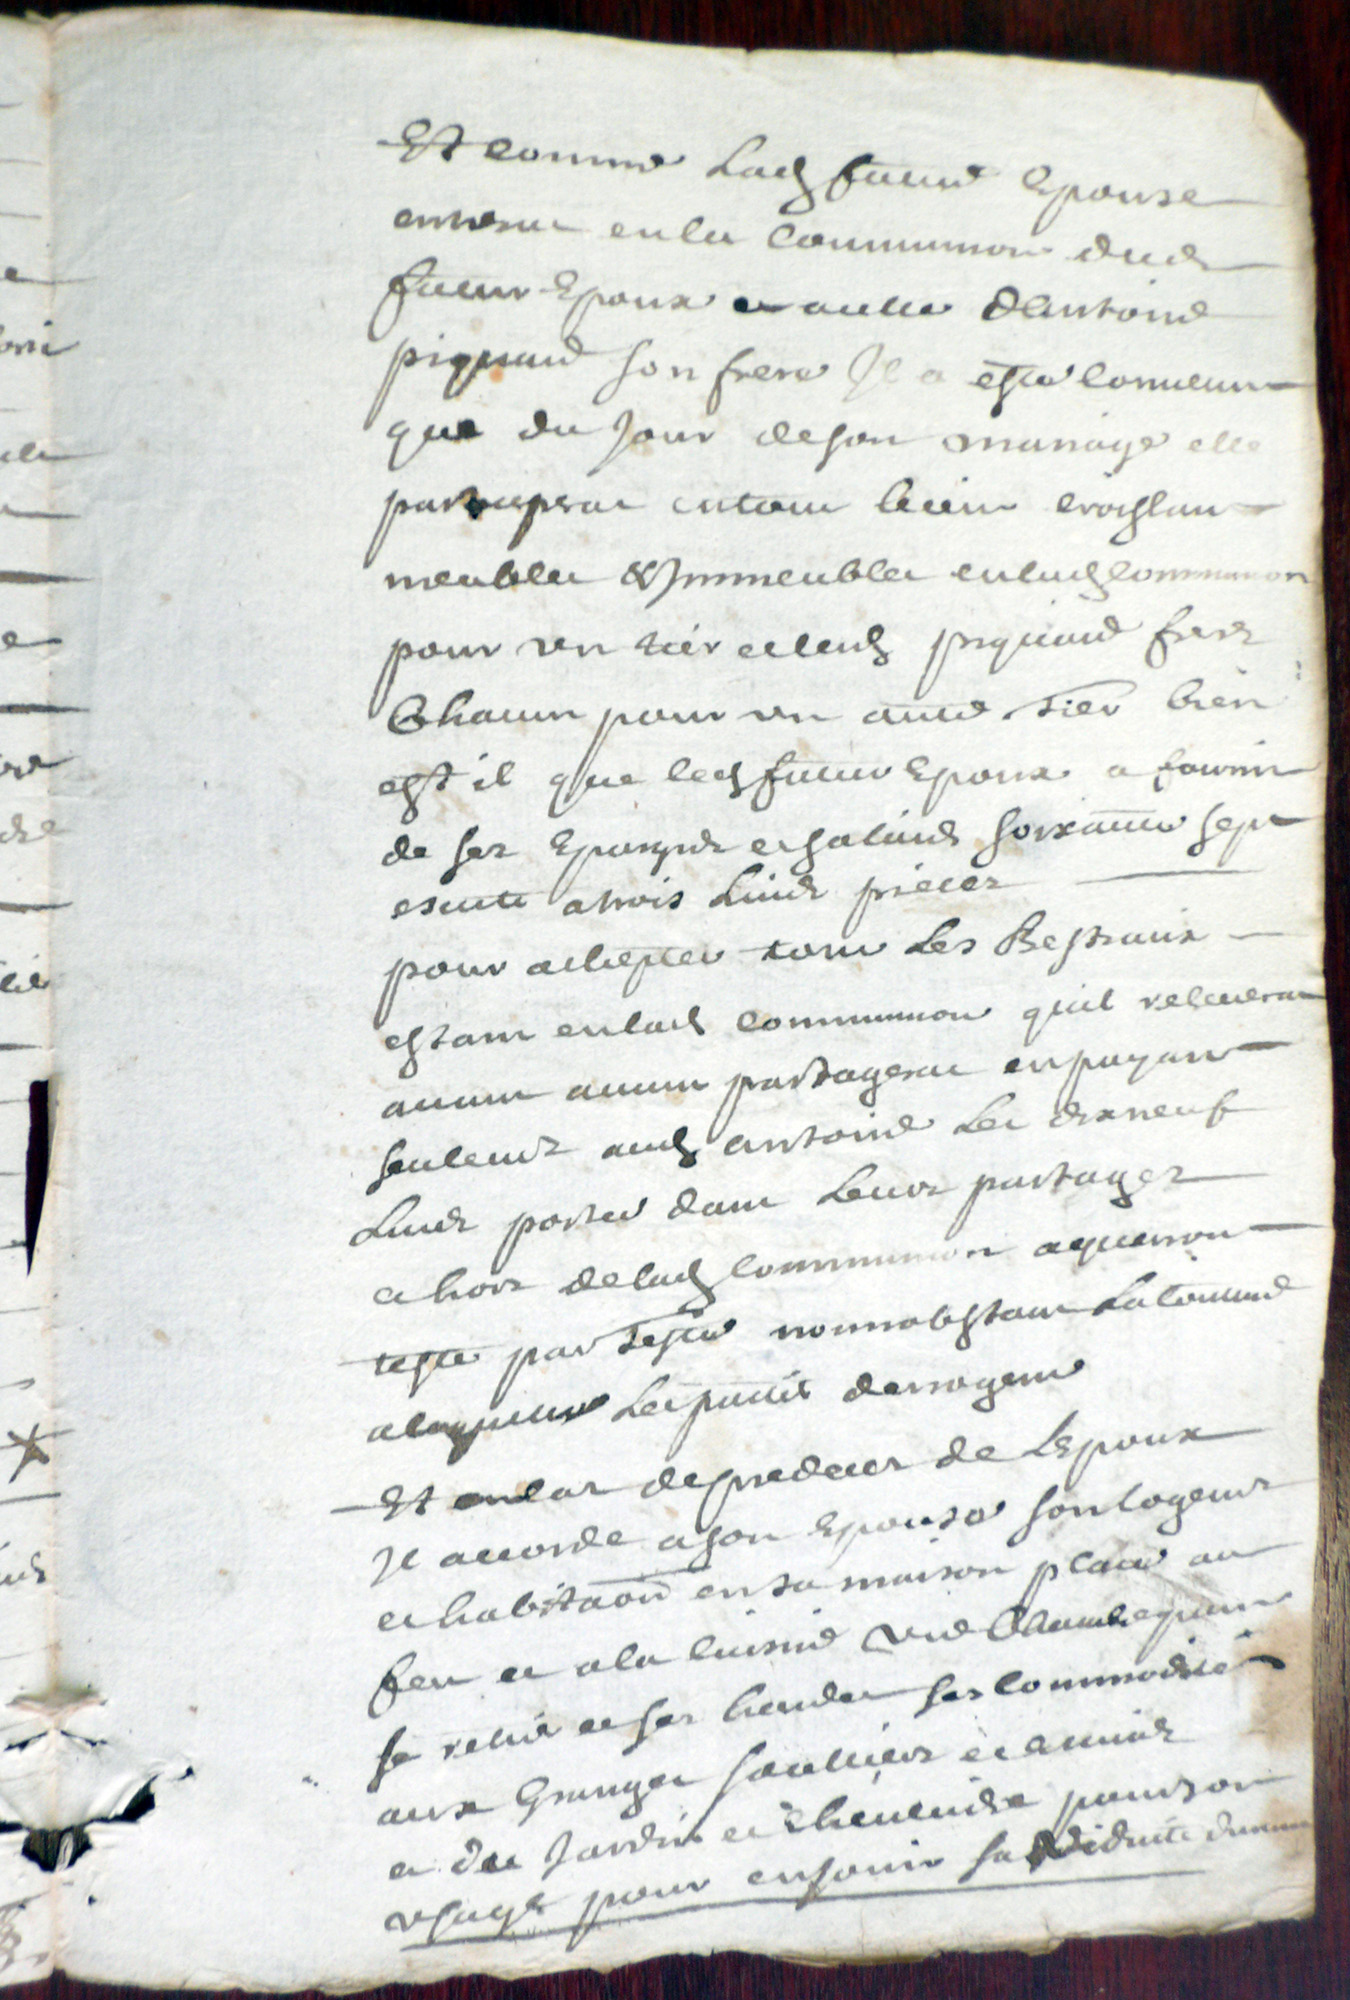 Et comme Lad future Epouse
entrera en la Communion dud
futur Epoux et avecq d'Antoine
piquand son frere Il a esté Convenu
que du Jour de son mariage elle
participera en tous biens croissans
meubles & Immeubles en lad Communion
pour un tier et lesd piquand freres
Chacun pour un autre Tier bien
est il que led futur Epoux a fourni
de ses Epargnes et salaires soixante sept
escute a trois Livres piecer
pour achepter tous Les Bestiaux
estans en lad Communion quil relevera
avant aucun partagera en payant
seulement aud antoine Les dixneuf
Livres portés dans Leurs partages
et hors de lad Communion aqueront
teste par Teste nonnobstant La Coutume
a laquelle Les parties derrogent
Et en cas de predeces de LEpoux
Il accorde a son Epouse son logement
et habitaôn en sa maison place au
feu et a la Cuisine une Chambre pour
se retirer et ses hardes ses Commodités
aux Granges Greniers et Ecuries
et du Jardin et Cheneviere pour son
usage pour en jouir sa viduité durant